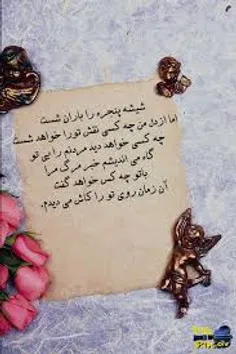 شیشه پنجره را باران شست
اما ازدل من چه کسی نقش تورا خواهد شست
چه کسی خواهد دید مردنم را بی تو
گاه می اندیشم خبر مرگ مرا
باتو چه کس خواهد گفت
آن زمان روی تو را کاش می دیدم.